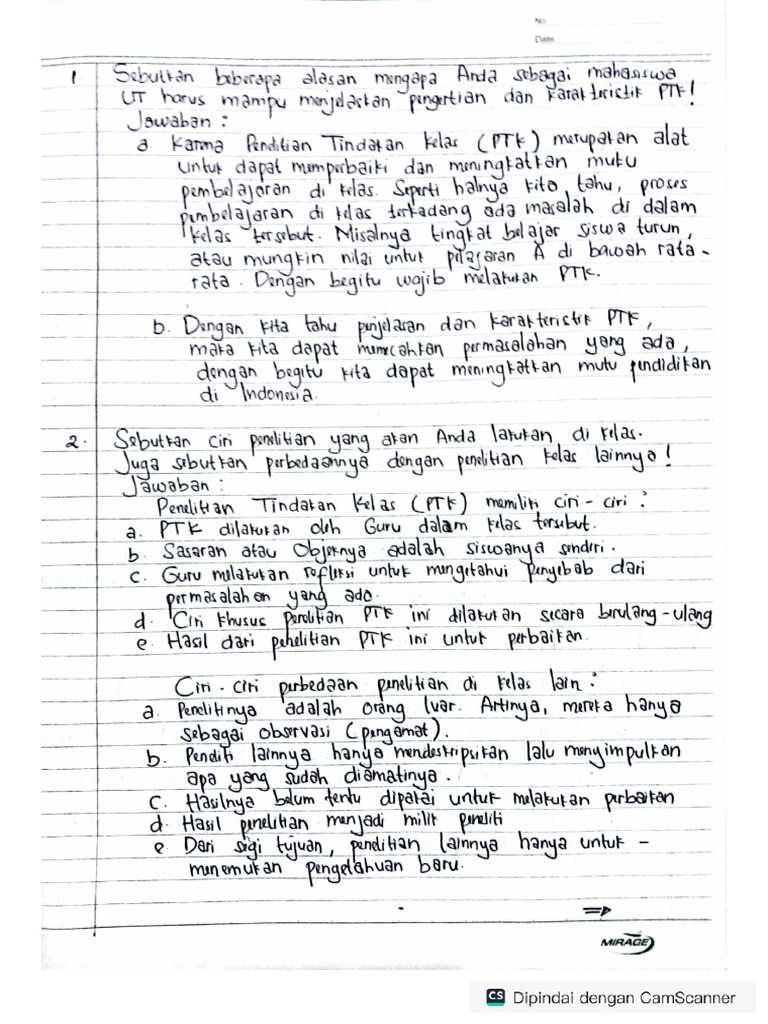 No
Date
1 Sebutkan beberapa alasan mengapa Anda sebagai mahasiswa
UT harus mampu menjelaskan pengertian dan karakteristik PTK!
Jawaban :
a Karena Penelitian Tindakan Kelas (PTK) merupakan alat
untuk dapat memperbaiki dan meningkatkan mutu
pembelajaran di kelas. Seperti halnya kita tahu, proses
pembelajaran di kelas terkadang ada masalah di dalam
kelas tersebut. Misalnya tingkat belajar siswa turun,
atau mungkin nilai untuk pelajaran A di bawah rata-
rata. Dengan begitu wajib melakukan PTK.
b. Dengan kita tahu penjelasan dan karakteristik PTK,
maka kita dapat memecahkan permasalahan yang ada,
dengan begitu kita dapat meningkatkan mutu pendidikan
di Indonesia.
2. Sebutkan ciri penelitian yang akan Anda lakukan di kelas.
Juga sebutkan perbedaannya dengan penelitian kelas lainnya!
Jawaban :
Penelitian Tindakan Kelas (PTK) memiliki ciri-ciri :
a. PTK dilakukan oleh Guru dalam kelas tersebut.
b. Sasaran atau Objeknya adalah siswanya sendiri.
c. Guru melakukan refleksi untuk mengetahui penyebab dari
permasalahan yang ada.
d. Ciri khusus penelitian PTK ini dilakukan secara berulang-ulang
e. Hasil dari penelitian PTK ini untuk perbaikan.
Ciri-ciri perbedaan penelitian di kelas lain :
a. Penelitinya adalah orang luar. Artinya, mereka hanya
sebagai observasi (pengamat).
b. Peneliti lainnya hanya mendeskripsikan lalu menyimpulkan
apa yang sudah diamatinya.
c. Hasilnya belum tentu dipakai untuk melakukan perbaikan
d. Hasil penelitian menjadi milik peneliti
e. Dari segi tujuan, penelitian lainnya hanya untuk -
menemukan pengetahuan baru.
MIRAGE
CS Dipindai dengan CamScanner